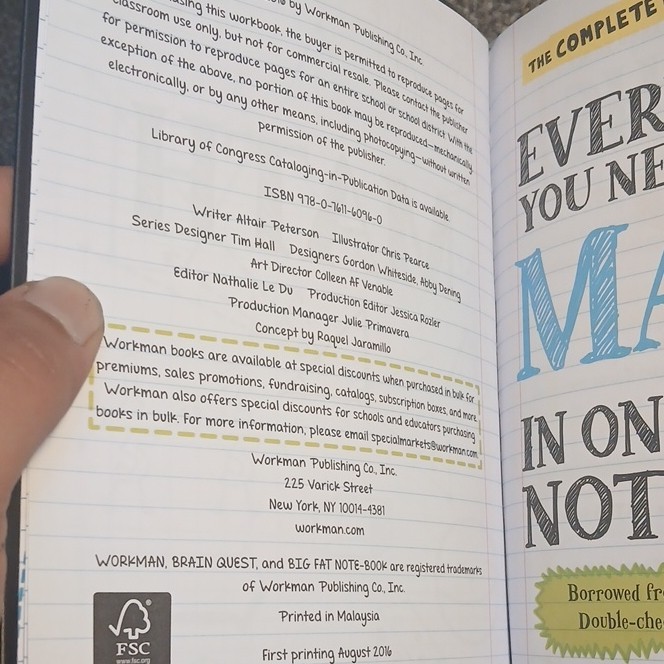 by Workman Publishing Co., Inc.
this workbook, the buyer is permitted to reproduce pages for
classroom use only, but not for commercial resale. Please contact the publisher
for permission to reproduce pages for an entire school or school district. With the
exception of the above, no portion of this book may be reproduced—mechanically,
electronically, or by any other means, including photocopying—without written
permission of the publisher.
Library of Congress Cataloging-in-Publication Data is available.
ISBN 978-0-7611-6096-0
Writer Altair Peterson Illustrator Chris Pearce
Series Designer Tim Hall Designers Gordon Whiteside, Abby Dening
Art Director Colleen AF Venable
Editor Nathalie Le Du Production Editor Jessica Rozler
Production Manager Julie Primavera
Concept by Raquel Jaramillo
Workman books are available at special discounts when purchased in bulk for
premiums, sales promotions, fundraising, catalogs, subscription boxes, and more.
Workman also offers special discounts for schools and educators purchasing
books in bulk. For more information, please email specialmarkets@workman.com.
Workman Publishing Co., Inc.
225 Varick Street
New York, NY 10014-4381
workman.com
WORKMAN, BRAIN QUEST, and BIG FAT NOTE-BOOK are registered trademarks
of Workman Publishing Co., Inc.
Printed in Malaysia
First printing August 2016
FSC
www.fsc.org
THE COMPLETE
EVER
YOU NE
MA
IN ON
NOT
Borrowed fr
Double-che